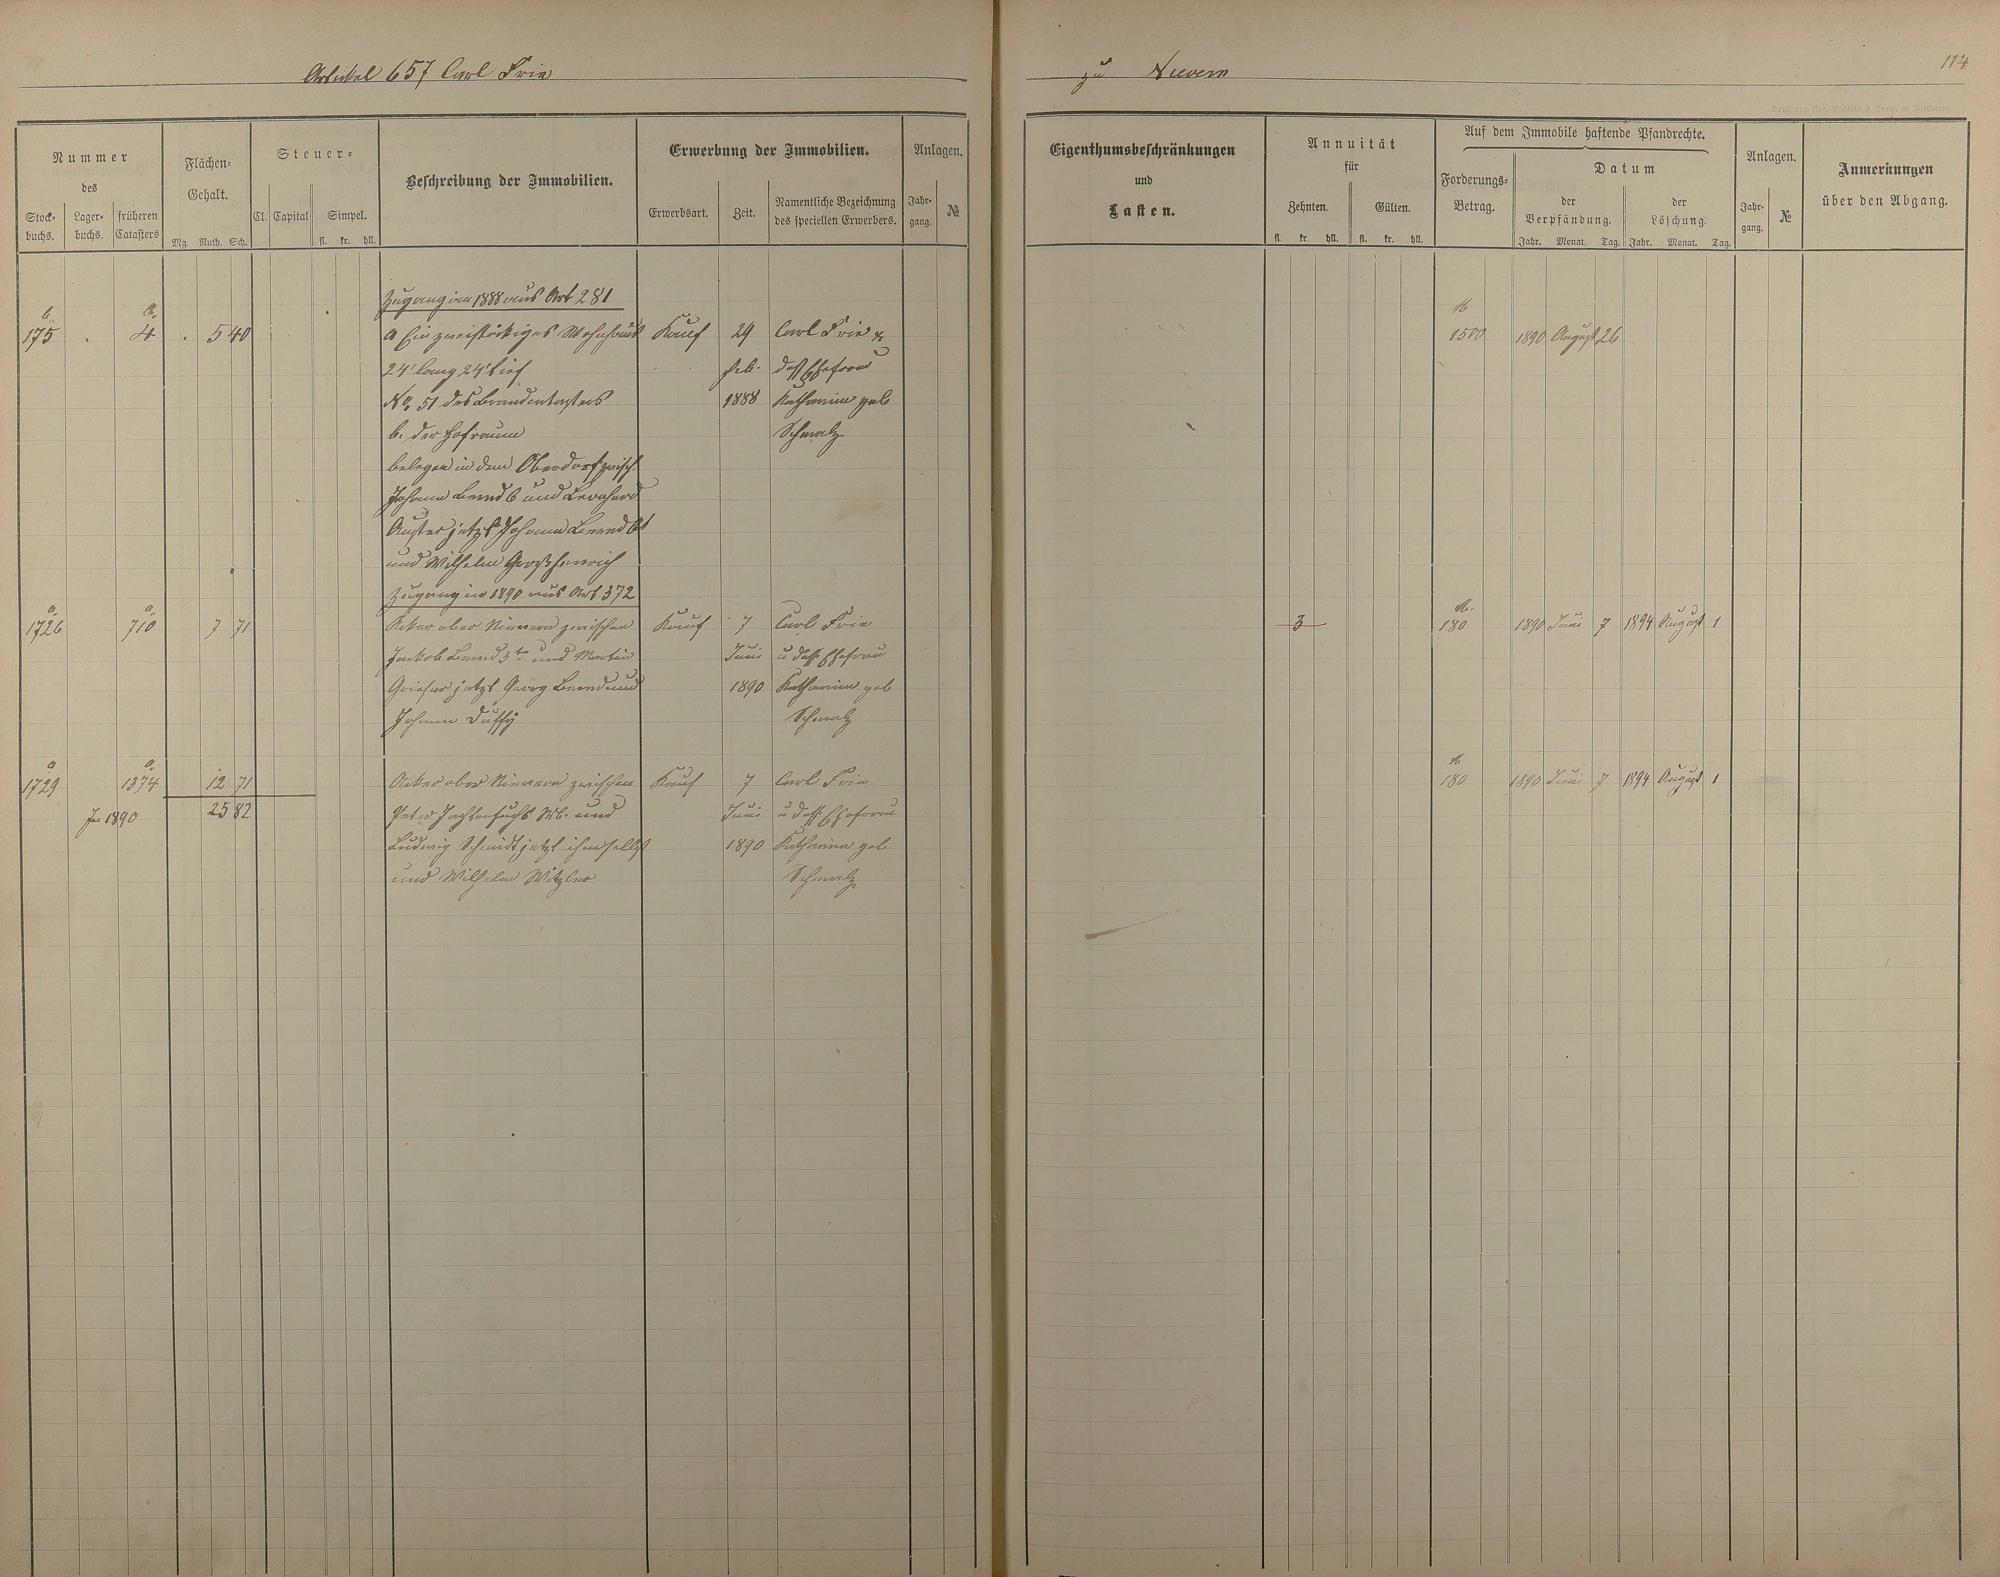 Artikel 657 Carl Frie
zu Nievern
114
Nummer
des
Stock-
buchs.
Lager-
buchs.
früheren
Catasters
Flächen-
Gehalt.
Mg. Ruth. Sch.
Steuer-
Cl. Capital Simpel.
fl. kr. hll.
Beschreibung der Immobilien.
Erwerbung der Immobilien.
Erwerbsart. Zeit.
Namentliche Bezeichnung
des speciellen Erwerbers.
Anlagen.
Jahr-
gang.
№
Eigenthumsbeschränkungen
und
Lasten.
Annuität
für
Zehnten. Gülten.
fl. kr. hll. fl. kr. hll.
Auf dem Immobile haftende Pfandrechte.
Forderungs-
Betrag.
Datum
der
Verpfändung.
der
Löschung.
Jahr. Monat. Tag. Jahr. Monat. Tag.
Anlagen.
Jahr-
gang.
№
Anmerkungen
über den Abgang.
Zugang im 1888 aus Art 281
b a M
175 4 5 40 a Ein zweistöckiges Wohnhaus Kauf 29 Carl Frie & 1500 1890 August 26
24' lang 24' tief Feb. dess Ehefrau
No. 51 des Brandcatasters 1888 Katharina geb
b. der Hofraum Schmalz
belegen in dem Oberdorf zwisch
Johann Bernd 6 und Bernhard
jetzt Johann Bernd 6t
und Wilhelm Großhenrich
Zugang in 1890 aus Art 372
a a M.
1726 710 7 71 Acker ober Nievern zwischen Kauf 7 Carl Frie 3 180 1890 Juni 7 1894 August 1
Jackob Bernd 3te und Martin Juni u dess Ehefrau
jetzt Georg Bernd und 1890 Katharina geb
Johann Duffy Schmalz
a a M
1729 1374 12 71 Acker ober Nievern zwischen Kauf 7 Carl Frie 180 1890 Juni 7 1894 August 1
In 1890 25 82 Peter und Juni u dess Ehefrau
Ludwig Schmidt jetzt ihm selbst 1890 Katharina geb
und Wilhelm Witzler Schmalz